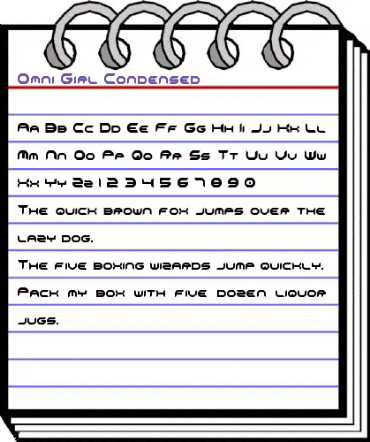 Omni Girl Condensed
Aa Bb Cc Dd Ee Ff Gg Hh Ii Jj Kk Ll
Mm Nn Oo Pp Qq Rr Ss Tt Uu Vv Ww
Xx Yy Zz 1 2 3 4 5 6 7 8 9 0
The quick brown fox jumps over the
lazy dog.
The five boxing wizards jump quickly.
Pack my box with five dozen liquor
jugs.